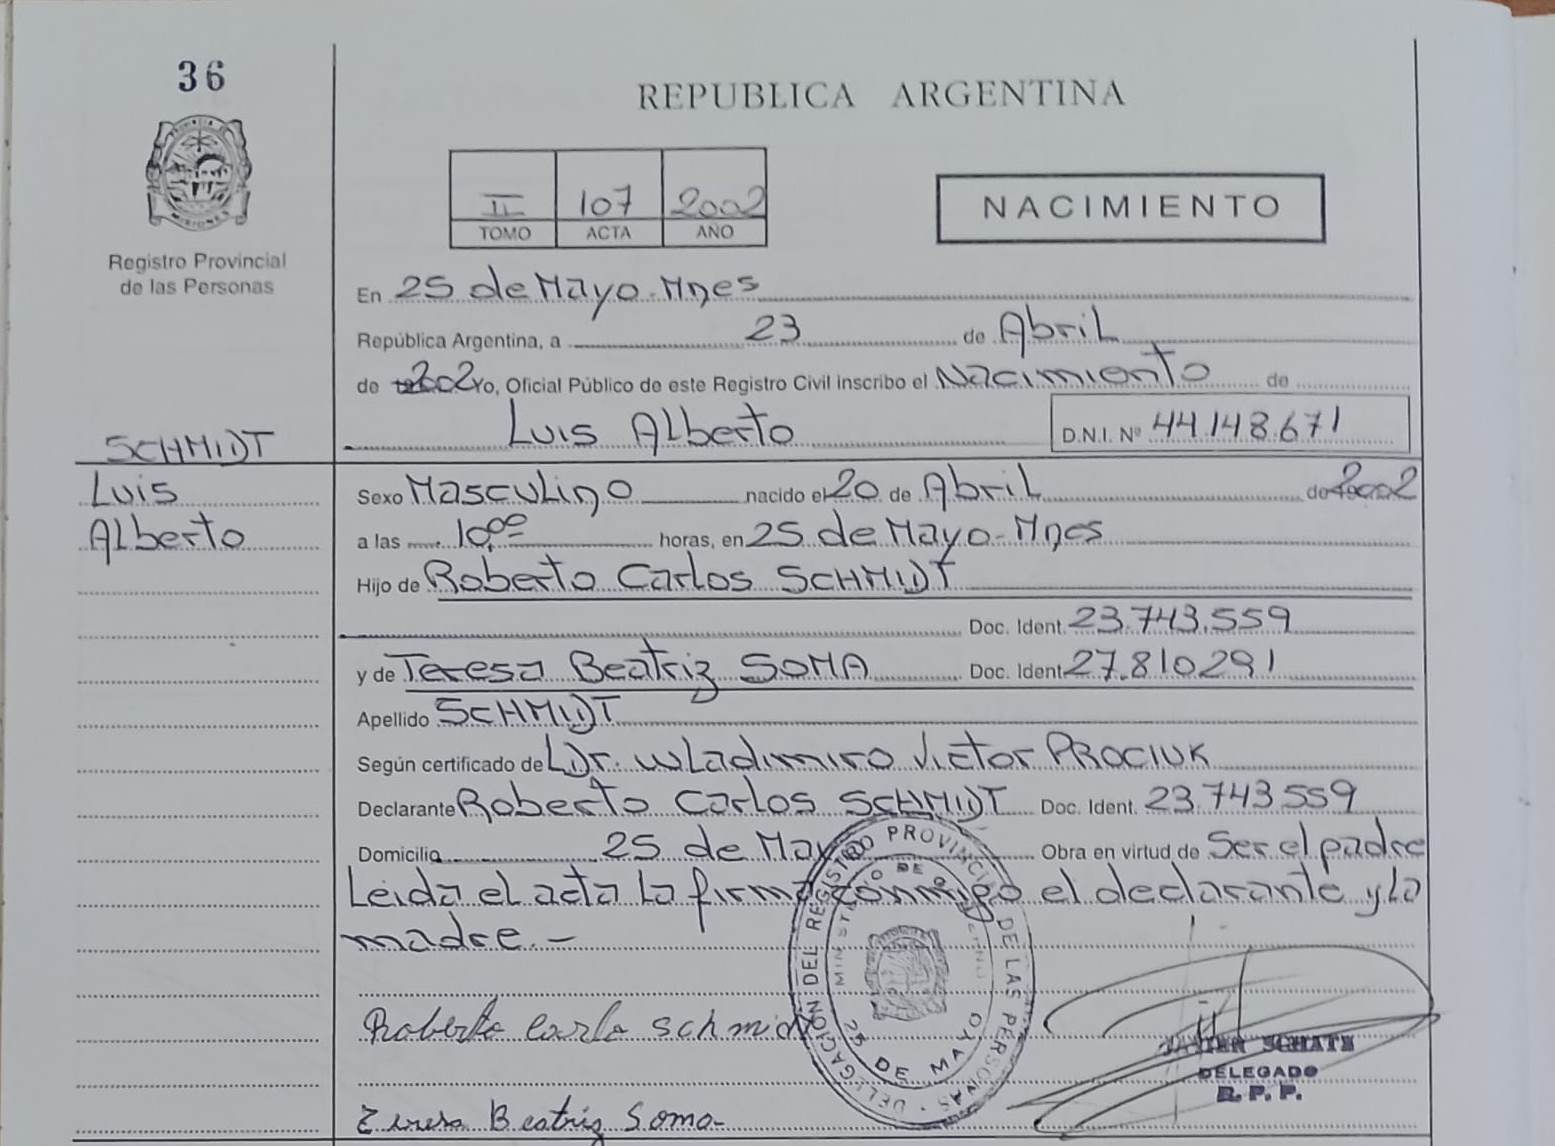 36
REPUBLICA ARGENTINA
II 107 2002
TOMO ACTA AÑO
NACIMIENTO
Registro Provincial
de las Personas
En 25 de Mayo - Mnes
República Argentina, a 23 de Abril
de 2002 Yo, Oficial Público de este Registro Civil inscribo el Nacimiento de
Luis Alberto D.N.I. Nº 44.148.671
SCHMIDT
Luis
Alberto
Sexo Masculino nacido el 20 de Abril de 2002
a las 10,00 horas, en 25 de Mayo - Mnes
Hijo de Roberto Carlos SCHMIDT
Doc. Ident. 23.743.559
y de Teresa Beatriz SOMA Doc. Ident 27.810291
Apellido SCHMIDT
Según certificado de Dr. Wladimiro Victor PROCIUK
Declarante Roberto Carlos SCHMIDT Doc. Ident. 23.743559
Domicilio 25 de Mayo Obra en virtud de Ser el padre
Leida el acta la firma conmigo el declarante y la
madre. -
Roberto Carlo Schmidt
Beatriz Soma-
DELEGACIÓN DEL REGISTRO PROVINCIAL DE LAS PERSONAS
MINISTERIO DE GOBIERNO
25 DE MAYO
DELEGADO
R. P. P.